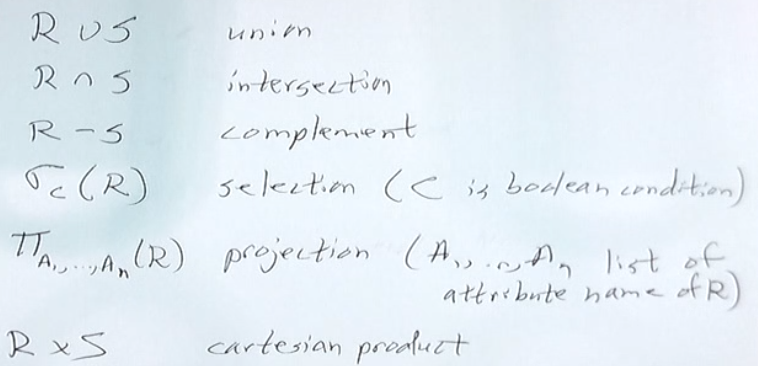 R ∪ S union
R ∩ S intersection
R - S complement
σ_c(R) selection (C is boolean condition)
π_A₁,...,Aₙ(R) projection (A₁,...,Aₙ list of
attribute name of R)
R x S cartesian product